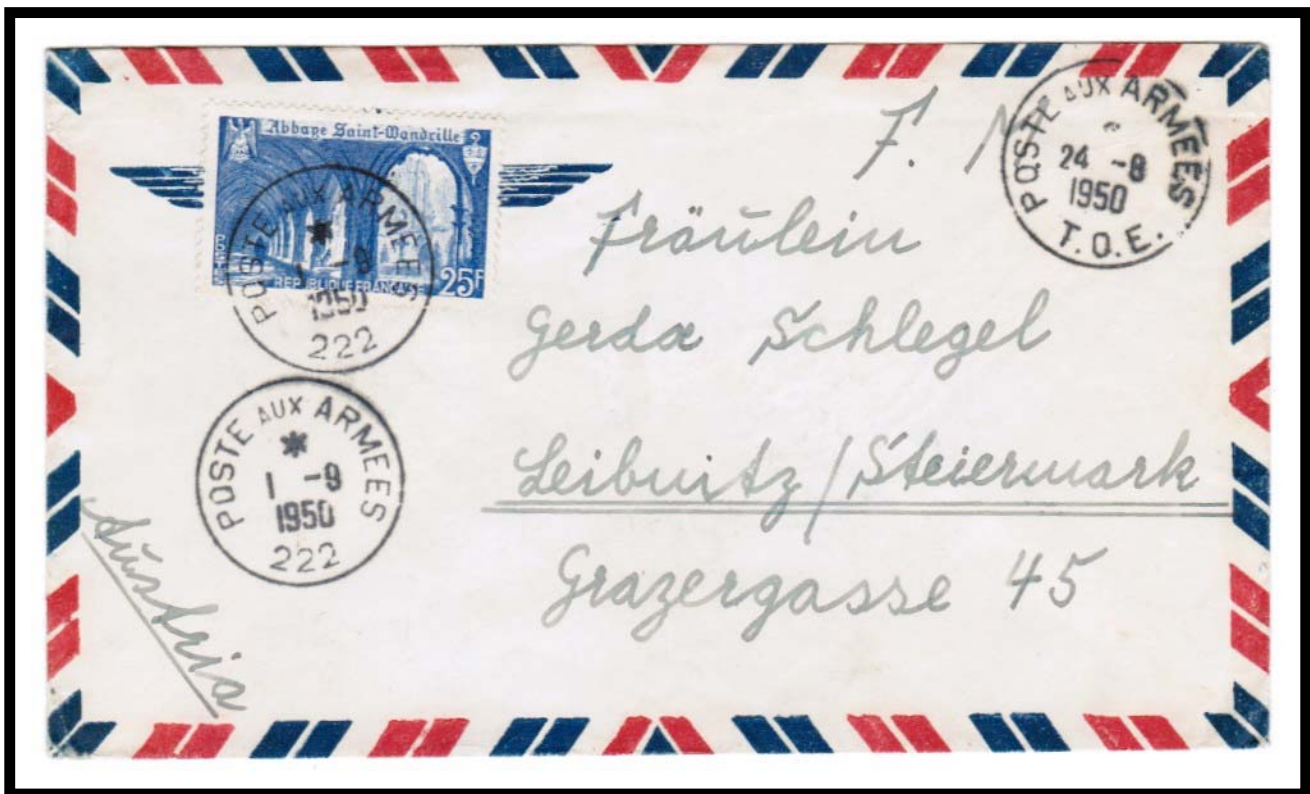 Abbaye Saint-Wandrille
REPUBLIQUE FRANÇAISE 25F
POSTE AUX ARMEES
1 -9
1950
222
POSTE AUX ARMEES
1 -9
1950
222
POSTE AUX ARMEES
24 -8
1950
T.O.E.
F.
Fräulein
Gerda Schlegel
Leibnitz / Steiermark
Grazergasse 45
Austria